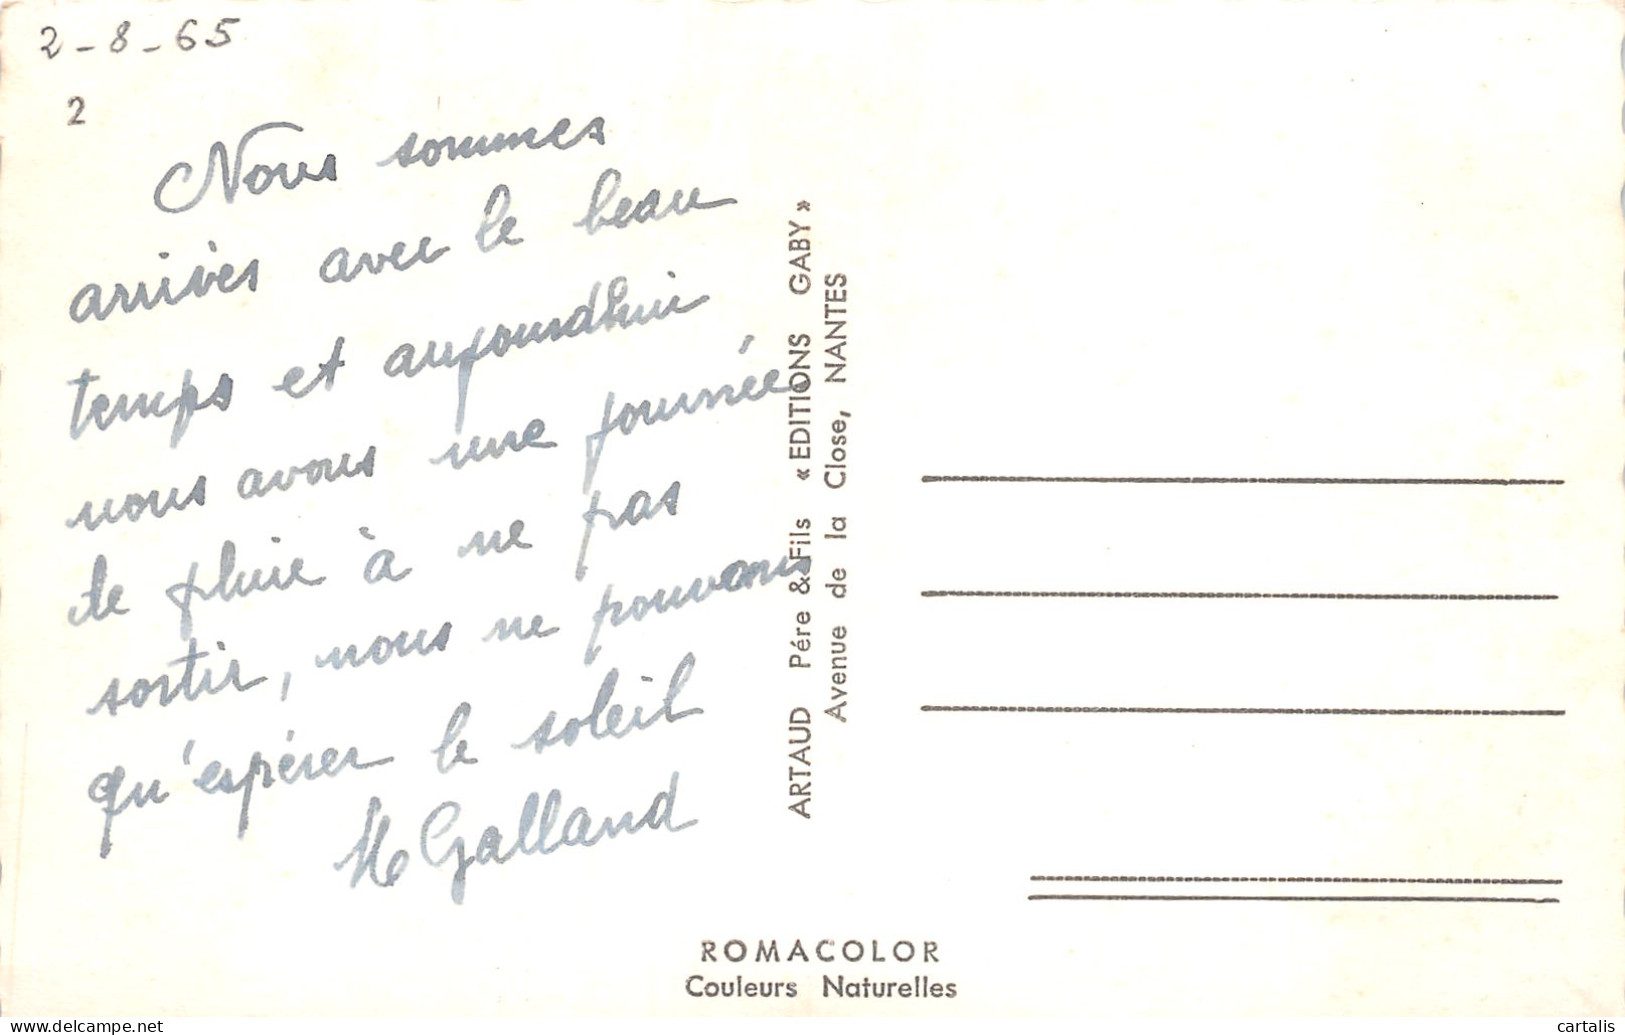 2-8-65
2
Nous sommes
arrivés avec le beau
temps et aujourdhui
nous avons une journée
de pluie à ne pas
sortir, nous ne pouvons
qu'espérer le soleil
M Galland
ARTAUD Pére & Fils « EDITIONS GABY »
Avenue de la Close, NANTES
ROMACOLOR
Couleurs Naturelles
www.delcampe.net
cartalis